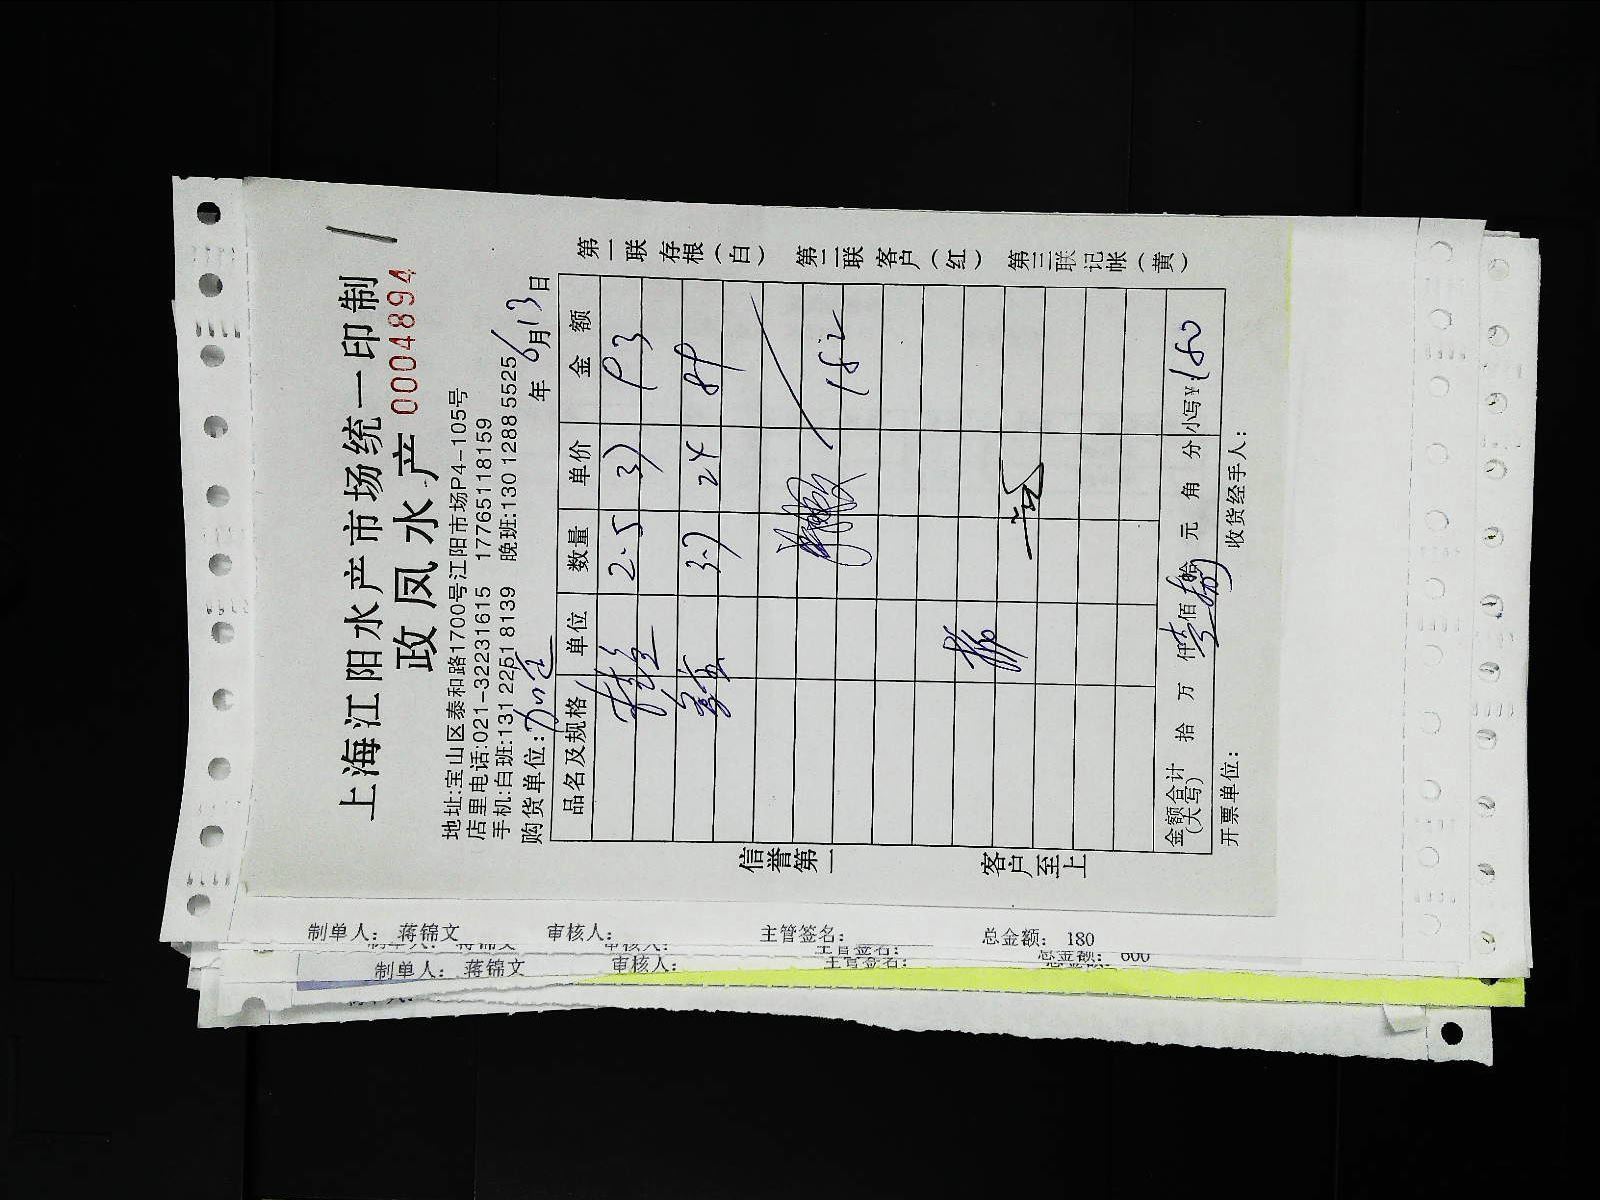 上海江阳水产市场统一印制
政凤水产 0004894
地址:宝山区泰和路1700号江阳市场P4-105号
店里电话:021-32231615 17765118159
手机:白班:131 2251 8139 晚班:130 1288 5525
购货单位: 年 6月13日
品名及规格 单位 数量 单价 金额
2.5 37 93
3.7 24 89
182
金额合计(大写) 拾 万 仟 佰 拾 元 角 分 小写¥:180
开票单位: 收货经手人:
第一联 存根(白) 第二联 客户(红) 第三联 记帐(黄)
信誉第一 客户至上
制单人: 蒋锦文 审核人: 主管签名: 总金额: 180
制单人: 蒋锦文 审核人: 主管签名: 总金额: 600
制单人: 蒋锦文 审核人: 主管签名: 总金额: